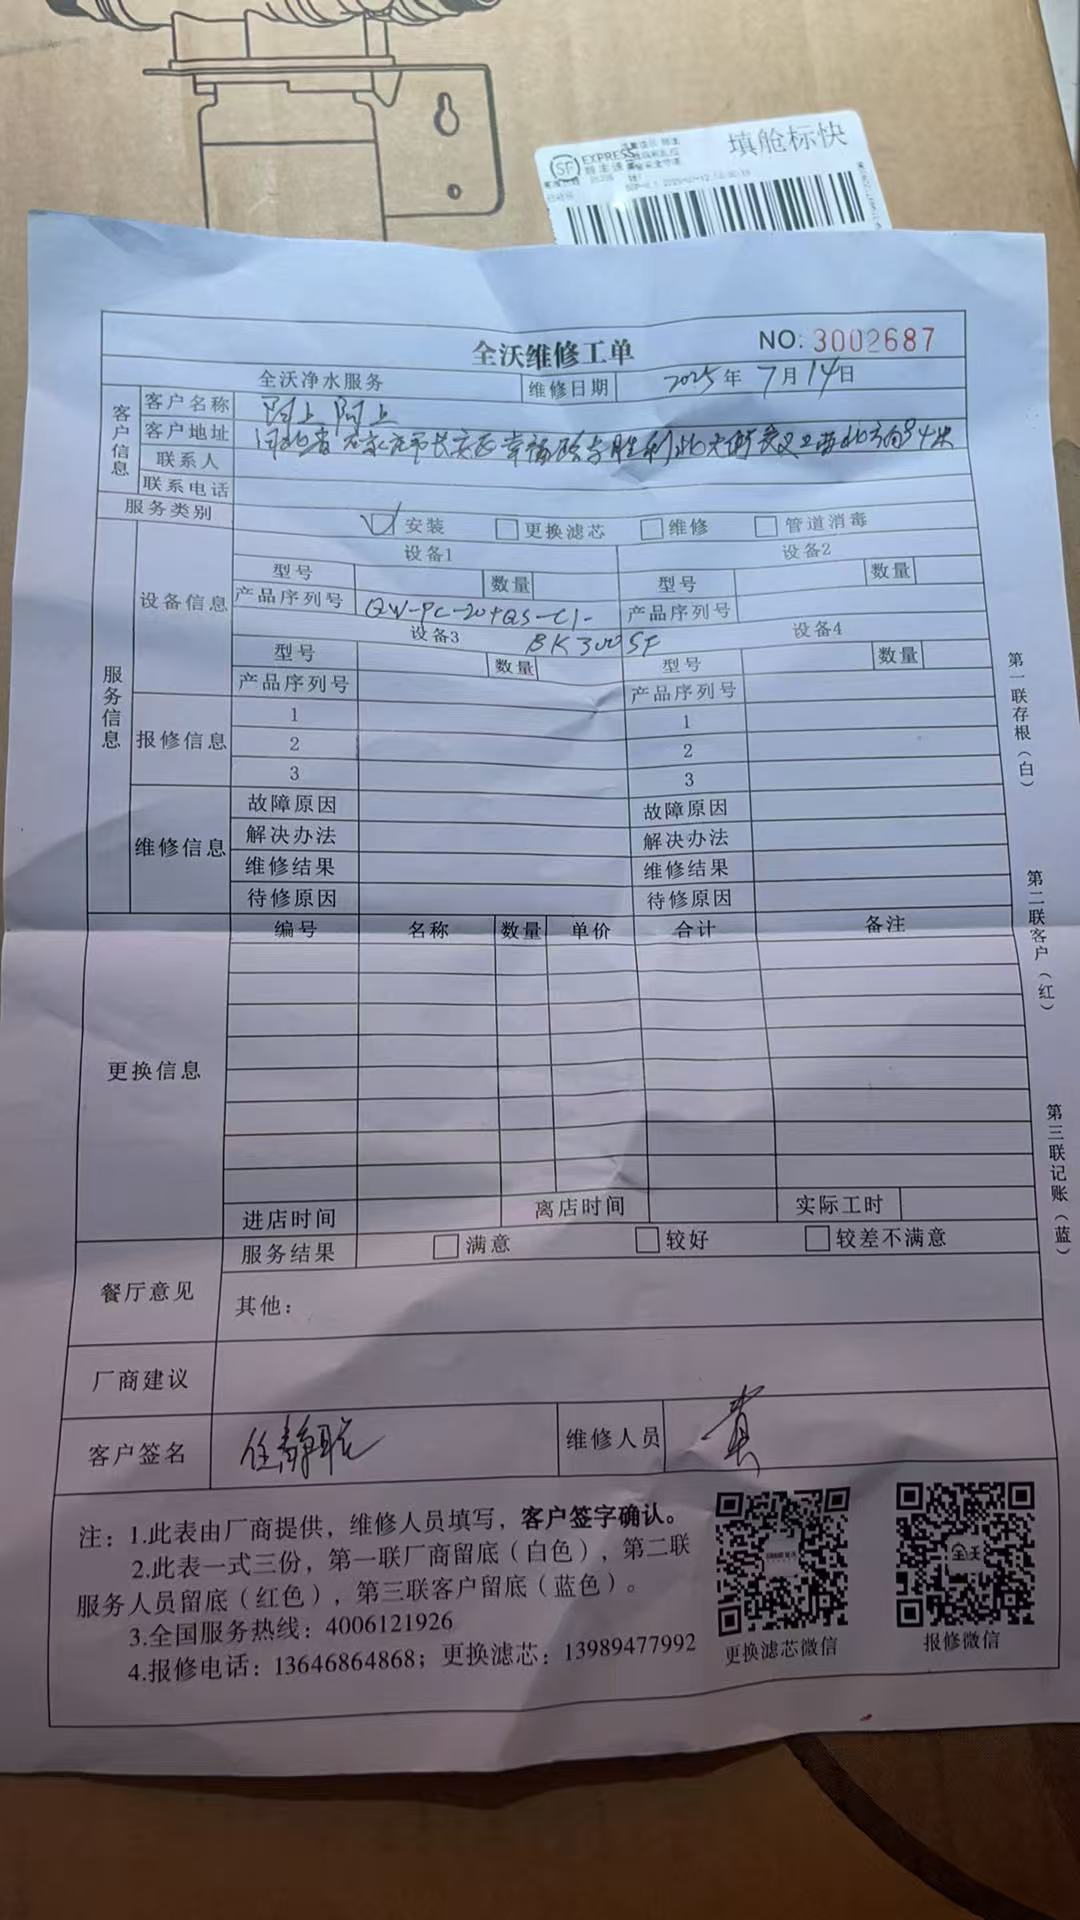 填舱标快
SF EXPRESS
全沃维修工单
NO: 3002687
全沃净水服务 维修日期 2025年7月14日
客户信息
客户名称 阿上阿上
客户地址 河北省石家庄市长安区幸福路与胜利北大街交叉口西北方向84米
联系人
联系电话
服务类别 安装 更换滤芯 维修 管道消毒
服务信息
设备信息
设备1 设备2
型号 数量 型号 数量
产品序列号 QW-PC-20+QS-C1- 产品序列号
BK300SF
设备3 设备4
型号 数量 型号 数量
产品序列号 产品序列号
报修信息
1 1
2 2
3 3
维修信息
故障原因 故障原因
解决办法 解决办法
维修结果 维修结果
待修原因 待修原因
更换信息
编号 名称 数量 单价 合计 备注
进店时间 离店时间 实际工时
餐厅意见
服务结果 满意 较好 较差不满意
其他：
厂商建议
客户签名 任静聪 维修人员 黄
注：1.此表由厂商提供，维修人员填写，客户签字确认。
2.此表一式三份，第一联厂商留底（白色），第二联
服务人员留底（红色），第三联客户留底（蓝色）。
3.全国服务热线：4006121926
4.报修电话：13646864868；更换滤芯：13989477992
更换滤芯微信
全沃
报修微信
第一联存根（白）
第二联客户（红）
第三联记账（蓝）